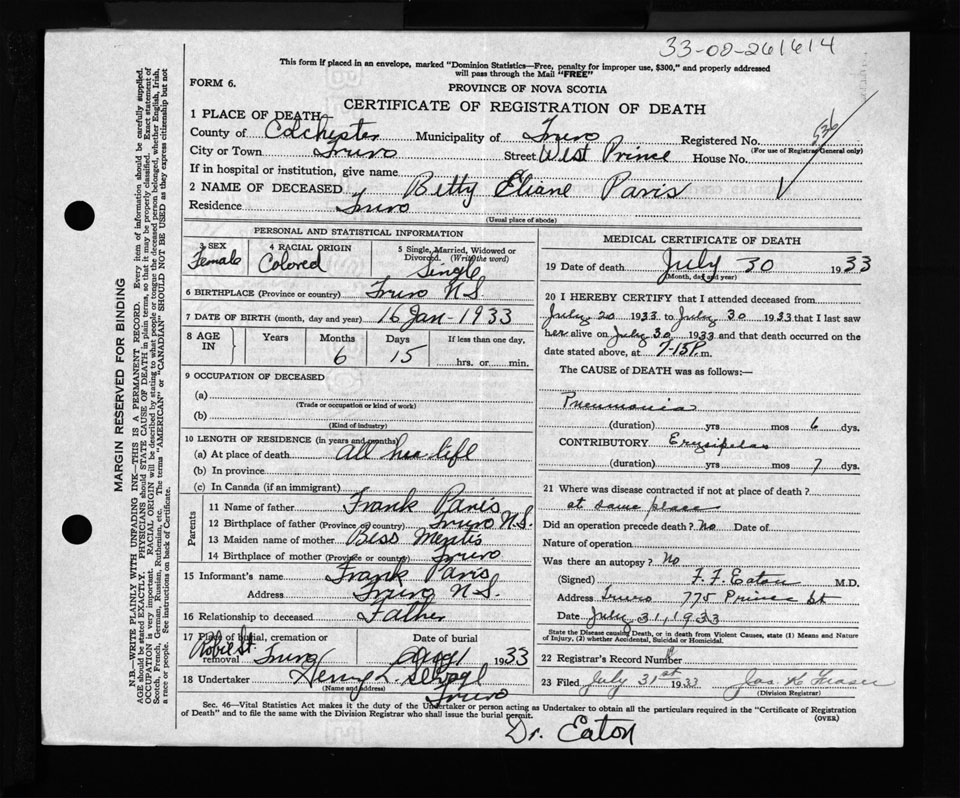 33-08-261614
This form if placed in an envelope, marked "Dominion Statistics—Free, penalty for improper use, $300," and properly addressed
will pass through the Mail "FREE"
FORM 6.
PROVINCE OF NOVA SCOTIA
CERTIFICATE OF REGISTRATION OF DEATH
536
1 PLACE OF DEATH
County of Colchester Municipality of Truro Registered No.
(For use of Registrar General only)
City or Town Truro Street West Prince House No.
If in hospital or institution, give name
2 NAME OF DECEASED Betty Eliane Paris
Residence Truro
(Usual place of abode)
MARGIN RESERVED FOR BINDING
N.B.—WRITE PLAINLY WITH UNFADING INK—THIS IS A PERMANENT RECORD. Every item of information should be carefully supplied.
AGE should be stated EXACTLY. PHYSICIANS should STATE CAUSE OF DEATH in plain terms, so that it may be properly classified. Exact statement of
OCCUPATION is very important. RACIAL ORIGIN will be described by stating to what people or tongue the deceased person belonged, whether English, Irish,
Scotch, French, German, Russian, Ruthenian, etc. The terms "AMERICAN" or "CANADIAN" SHOULD NOT BE USED as they express citizenship but not
a race or people. See instructions on back of Certificate.
PERSONAL AND STATISTICAL INFORMATION
3 SEX Female
4 RACIAL ORIGIN Colored
5 Single, Married, Widowed or
Divorced. (Write the word)
Single
6 BIRTHPLACE (Province or country) Truro N.S.
7 DATE OF BIRTH (month, day and year) 16 Jan - 1933
8 AGE IN Years Months 6 Days 15 If less than one day,
hrs. or min.
9 OCCUPATION OF DECEASED
(a)
(Trade or occupation or kind of work)
(b)
(Kind of industry)
10 LENGTH OF RESIDENCE (in years and months)
(a) At place of death all her life
(b) In province
(c) In Canada (if an immigrant)
Parents
11 Name of father Frank Paris
12 Birthplace of father (Province or country) Truro N.S.
13 Maiden name of mother Bess Mentis
14 Birthplace of mother (Province or country) Truro
15 Informant's name Frank Paris
Address Truro N.S.
16 Relationship to deceased Father
17 Place of burial, cremation or
removal Robie St Truro
Date of burial 1933
18 Undertaker Henry L.
(Name and address) Truro
MEDICAL CERTIFICATE OF DEATH
19 Date of death July 30 1933
(Month, day and year)
20 I HEREBY CERTIFY that I attended deceased from
July 20 1933 to July 30 1933 that I last saw
her alive on July 30 1933 and that death occurred on the
date stated above, at 7-15 P.m.
The CAUSE of DEATH was as follows:—
Pneumonia
(duration) yrs mos 6 dys.
CONTRIBUTORY Erysipelas
(duration) yrs mos 7 dys.
21 Where was disease contracted if not at place of death?
at same place
Did an operation precede death? No Date of
Nature of operation
Was there an autopsy? No
(Signed) F. F. Eaton M.D.
Address Truro 775 Prince St
Date July 31, 1933
State the Disease causing Death, or in death from Violent Causes, state (1) Means and Nature
of Injury, (2) whether Accidental, Suicidal or Homicidal.
22 Registrar's Record Number
23 Filed July 31st 1933 Jas. K Fraser
(Division Registrar)
Sec. 46—Vital Statistics Act makes it the duty of the Undertaker or person acting as Undertaker to obtain all the particulars required in the "Certificate of Registration
of Death" and to file the same with the Division Registrar who shall issue the burial permit.
(OVER)
Dr. Eaton